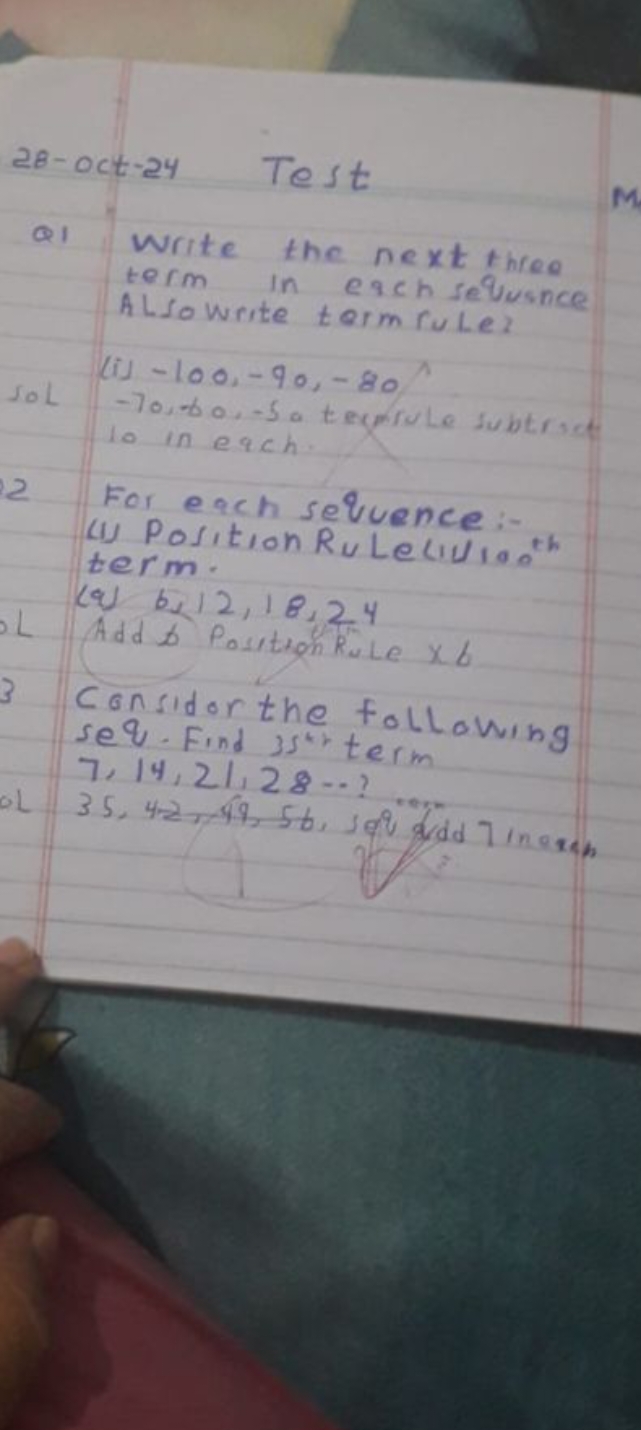 28-oct-24 Test
M
Q1 Write the next three
term in each sequence
ALSo write term rule?
(i) -100, -90, -80
Sol -70, -60, -50 term rule subtract
10 in each.
2 For each sequence :-
(i) Position RuLe (ii) 100th
term.
(a) 6, 12, 18, 24
oL Add 6 Position RuLe x 6
3 Consider the following
seq. Find 35th term
7, 14, 21, 28 --?
oL 35, 42, 49, 56, seq add 7 in each